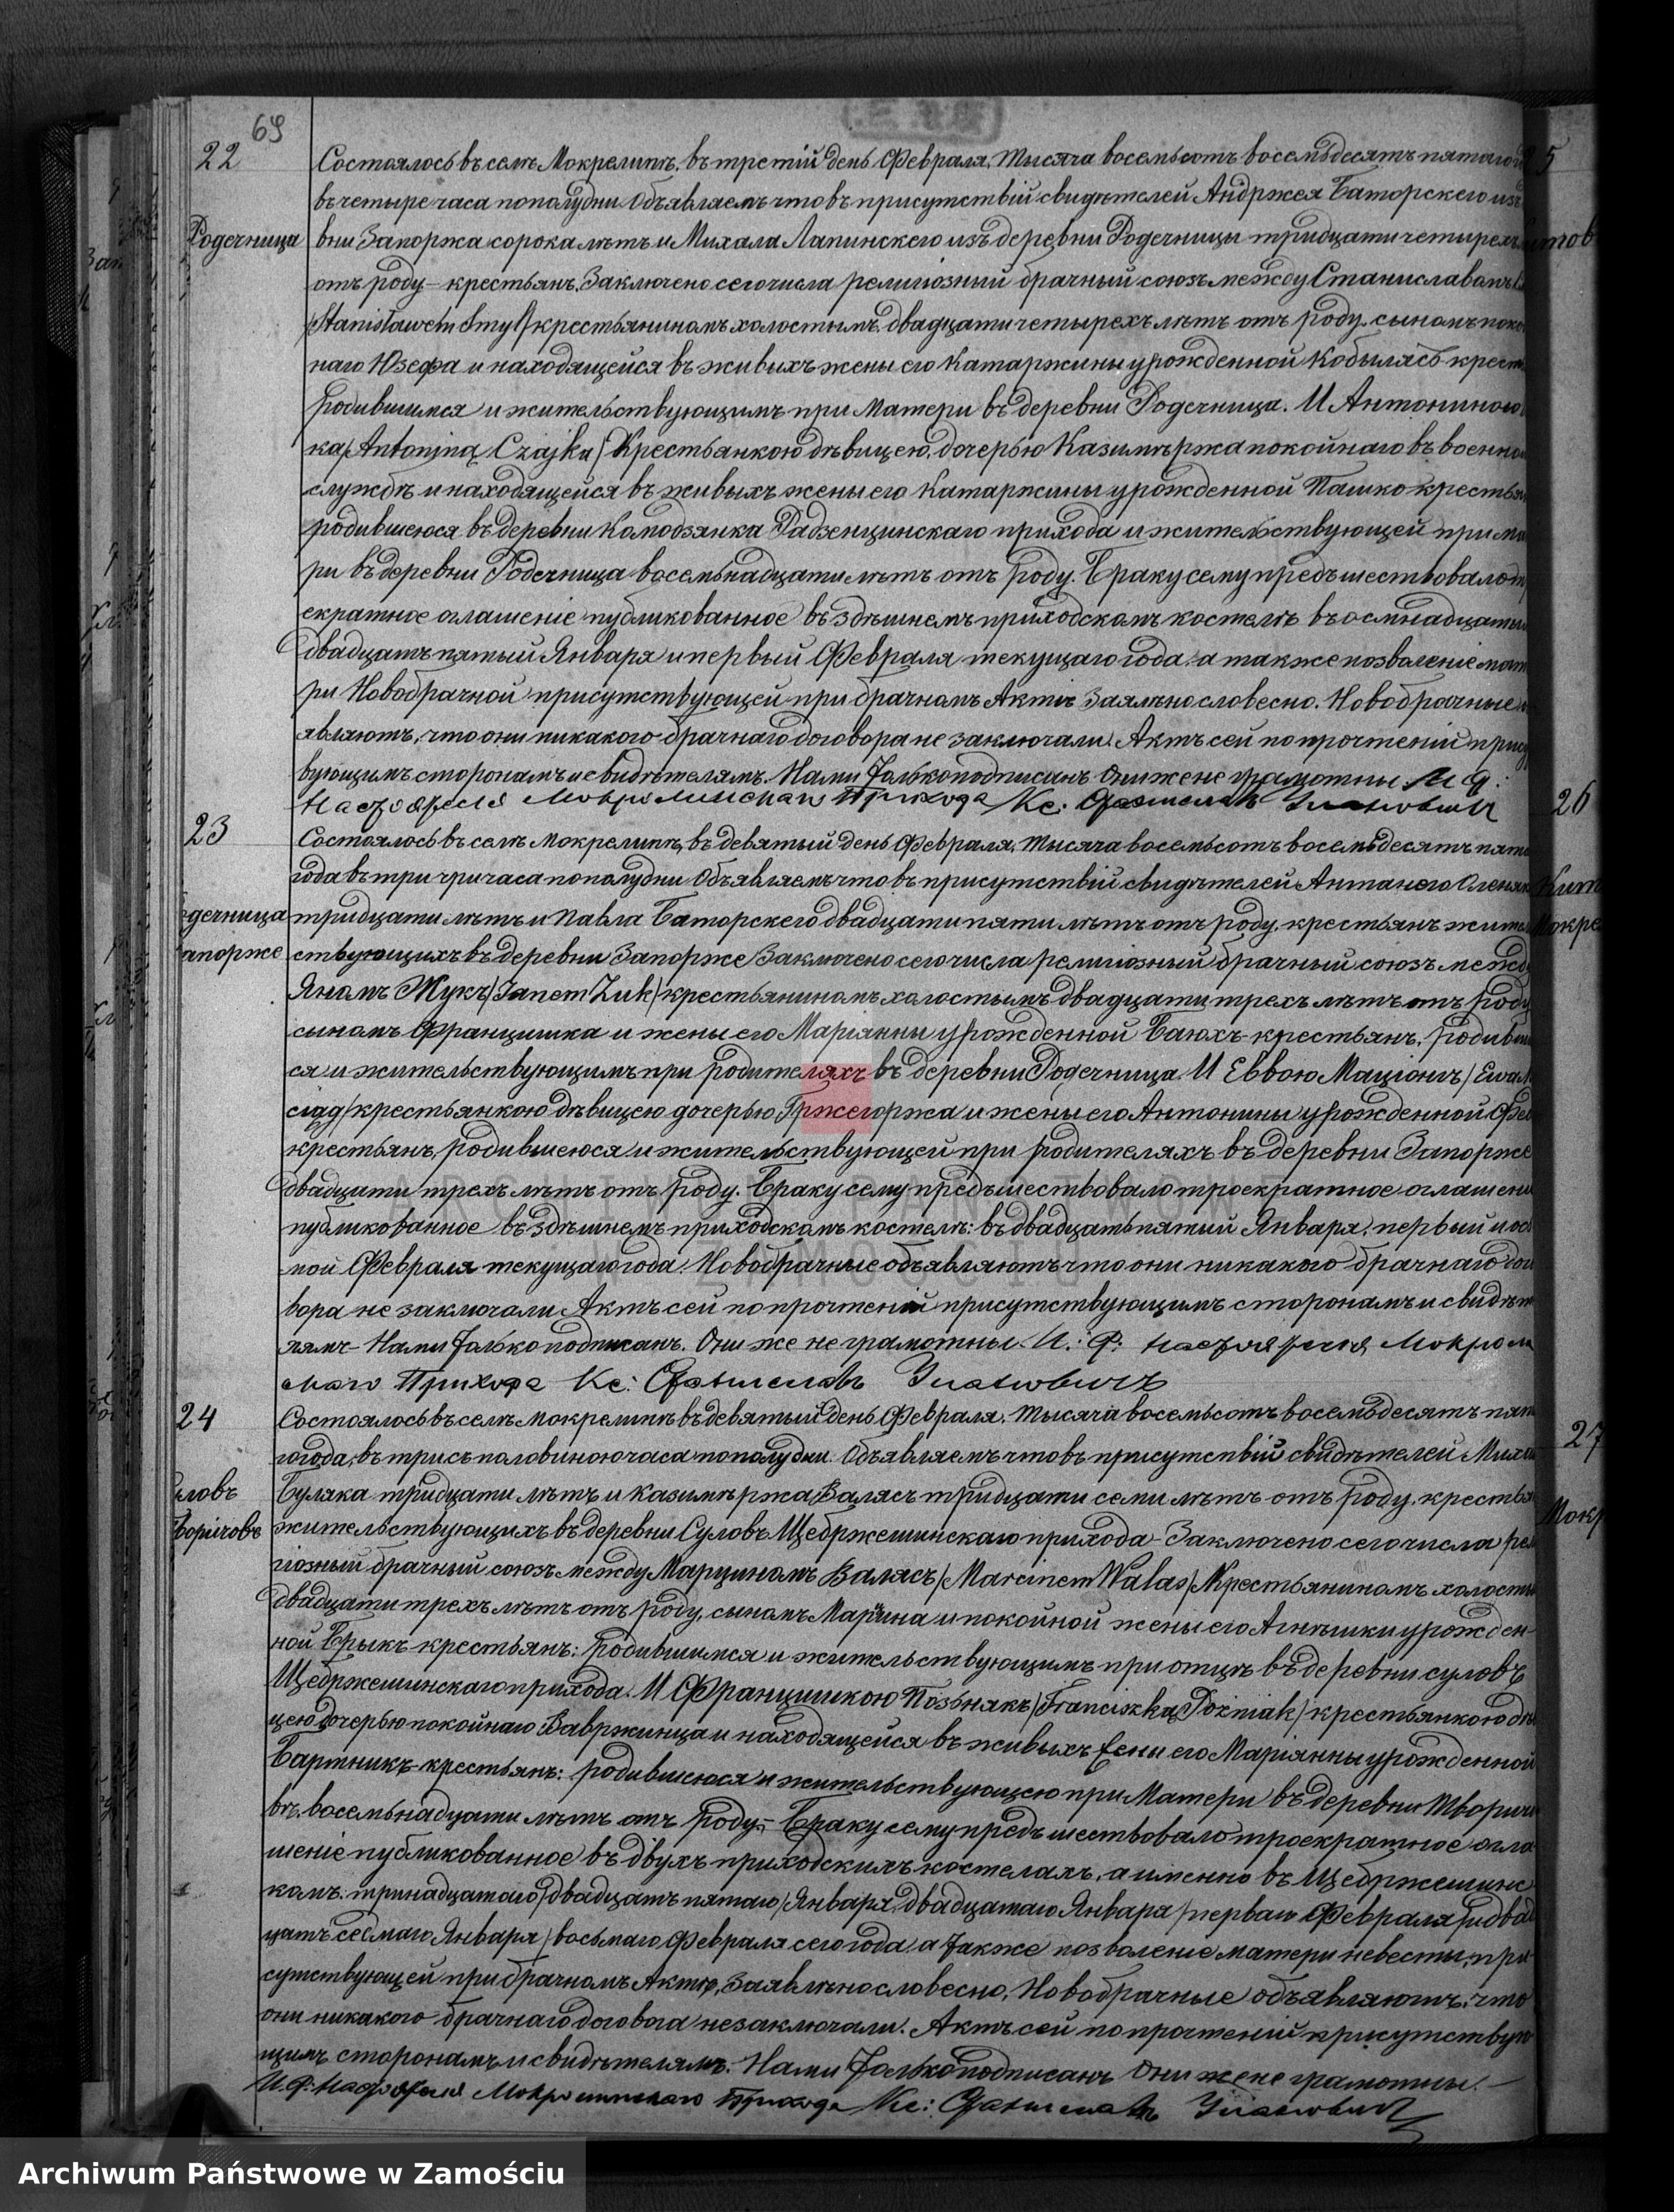 69
22
Состоялось въ селѣ Мокрелипѣ, въ третій день Февраля, тысяча восемьсотъ восемьдесятъ пятаго
въ четыре часа пополудни Объявляемъ что въ присутствій свидѣтелей Андржея Баторскего изъ
Родечница
вни Запоржа сорока лѣтъ и Михала Лапинскего изъ деревни Родечницы тридцати четырехъ
отъ роду крестьянъ. Заключено сего числа религіозный брачный союзъ между Станиславомъ
/Stanisławem Smyl/ крестьяниномъ холостымъ двадцати четырехъ лѣтъ отъ роду, сыномъ покой
наго Юзефа и находящейся въ живыхъ жены его Катаржины урожденной Кобылясъ крест
родившимся и жительствующимъ при матери въ деревни Родечница. И Антониною
ка /Antoniną Czajka/ Крестьянкою дѣвицею, дочерью Казимѣржа покойнаго въ военной
службѣ и находящейся въ живыхъ жены его Катаржины урожденной Пашко крестья
родившеюся въ деревни Комодзянка Радзенцинскаго прихода и жительствующей при ма
ри въ деревни Родечница восемьнадцати лѣтъ отъ роду. Браку сему предъшествовало тр
екратное оглашеніе публикованное въ здѣшнемъ приходскомъ костелѣ въ осмнадцатый
двадцать пятый Января и первый Февраля текущаго года, а также позволеніе мат
ри Новобрачной присутствующей при брачномъ Актѣ заялѣно словесно. Новобрачные
являютъ, что они никакого брачнаго договора не заключали. Актъ сей по прочтеній прису
вующимъ сторонамъ и свидѣтелямъ. Нами только подписанъ Они же не грамотны. И. Ф:
Настоятеля Мокролипскаго Прихода Кс: Станиславъ
23
Состоялось въ селѣ Мокрелипѣ, въ девятый день Февраля, тысяча восемьсотъ восемьдесятъ пята
года въ три три часа пополудни Объявляемъ что въ присутствій свидѣтелей Антанего Оленяк
дечница
тридцати лѣтъ и Павла Баторскего двадцати пяти лѣтъ отъ роду, крестьянъ жител
апорже
ствующихъ въ деревни Запорже Заключено сего числа религіозный брачный союзъ между
Яномъ Жукъ /Janem Żuk/ крестьяниномъ холостымъ двадцати трехъ лѣтъ отъ роду
сыномъ Францишка и жены его Маріянны урожденной Баюхъ крестьянъ, родивш
ся и жительствующимъ при родителяхъ въ деревни Родечница. И Еввою Маціонгъ /Ewa M
ciąg/ крестьянкою дѣвицею дочерью Гржегоржа и жены его Антонины урожденной Фе
крестьянъ, родившеюся и жительствующей при родителяхъ въ деревни Запорже
двадцати трехъ лѣтъ отъ роду. Браку сему предъшествовало троекратное оглашені
публикованное въ здѣшнемъ приходскомъ костелѣ: въ двадцать пятый Января, первый и ос
мой Февраля текущаго года. Новобрачные объявляютъ что они никакого брачнаго дог
вора не заключали Актъ сей по прочтеній присутствующимъ сторонамъ и свидѣт
лямъ Нами только подписанъ. Они же не грамотны. И: Ф: Настоятеля Мокроли
скаго Прихода Кс: Станиславъ
24
Состоялось въ селѣ Мокрелипѣ въ девятый день Февраля, тысяча восемьсотъ восемьдесятъ пят
гогода, въ три съ половиною часа пополудни. Объявляемъ что въ присутствій свидѣтелей Миха
ловъ
Буляка тридцати лѣтъ и Казимѣржа Валясъ тридцати семи лѣтъ отъ роду, крестья
воричовъ
жительствующихъ въ деревни Суловъ Щебржешинскаго прихода Заключено сего числа рел
гіозный брачный союзъ между Марциномъ Валясъ /Marcinem Walas/ Крестьяниномъ холосты
двадцати трехъ лѣтъ отъ роду, сыномъ Марцина и покойной жены его Агнѣшки урожден
ной Брыкъ крестьянъ: родившимся и жительствующимъ при отцѣ въ деревни Суловъ
Щебржешинскаго прихода. И Францишкою Позьнякъ /Franciszką Poźniak/ крестьянкою дѣв
цею дочерью покойнаго Вавржинца и находящейся въ живыхъ жены его Маріянны урожденной
Бартникъ крестьянъ: родившеюся и жительствующею при Матери въ деревни Творич
въ, восемьнадцати лѣтъ отъ роду. Браку сему предъшествовало троекратное огла
шеніе публикованное въ двухъ приходскихъ костелахъ, а именно въ Щебржешинс
комъ: тринадцатаго /двадцать пятаго/ Января, двадцатаго Января /перваго Февраля/ и двад
цать седмаго Января /восьмаго Февраля сего года, а также позволеніе матери невесты, при
сутствующей при брачномъ Актѣ, заявлѣно словесно, Новобрачные объявляютъ, что
они никакого брачнаго договора не заключали. Актъ сей по прочтеній присутствую
щимъ сторонамъ и свидѣтелямъ. Нами только подписанъ Они же не грамотны.
И. Ф: Настоятеля Мокролипскаго Прихода Кс: Станиславъ
26
27
ARCHIWUM PAŃSTWOWE
W ZAMOŚCIU
Archiwum Państwowe w Zamościu